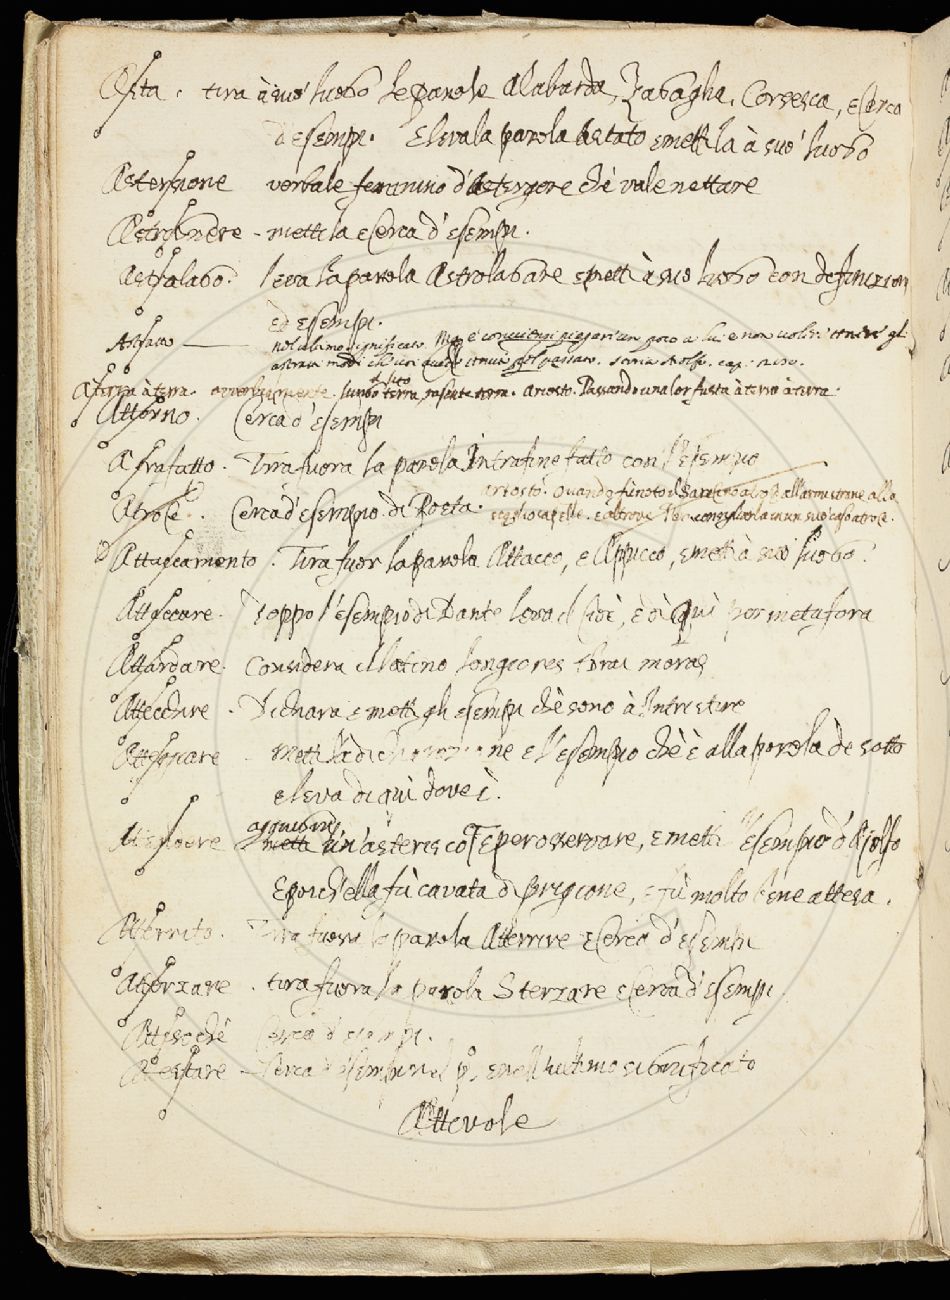 Asta. tira à suo luogo le parole Alabarda, Zagaglia, Corsesca, e cerca
d'esempi. E leva la parola Astato e mettila à suo luogo
Astersione verbale feminino d'Astergere chè vale nettare
Astrignere - mettila e cerca d'esempi.
Astrolago. leva la parola Astrolagare e metti à suo luogo con definizioni
ed essempi.
Astratto
nel ultimo significato. e convienti piegar un poco a lui e non voler tener gli
A terra à terra. avverbialmente. terra, rasente terra. Ariosto. Passando una lor fusta à terra à terra
Attorno. Cerca d'esempi
Atrafatto. Tira fuora la parola Intrafinefatto con l'esempio
Ariosto. Quando fù noto il Saracino atroce all'arme strane alla
Atroce. Cerca d'esempio di Poeta. scogliosa pelle. e altrove in un suo caso atroce.
Attaccamento. Tira fuor la parola Attacco, e Appicco, e metti à suo luogo.
Attaccare. Doppo l'esempio di Dante leva il Cioè, e dì Quì per metafora
Attardare. Considera il latino longiores moras
Attecchire. Dichiara e metti gli esempi chè sono à Intristire
Attegghiare - Metti la dichiarazione e l'esempio chè è alla parola de sotto
e leva di quì dove è.
Attendere aggiugni un asterisco per osservare, e metti l'esempio d'Ajolfo
E poich'ella fù cavata di prigione, e fù molto bene attesa.
Atterrito. Tira fuora la parola Atterrire e cerca d'esempi
Atterzare. tira fuora la parola Sterzare e cerca d'esempi.
Attesoché Cerca d'esempi.
Attestare - Cerca d'esempi nel p.o e nell'ultimo significato
Attevole